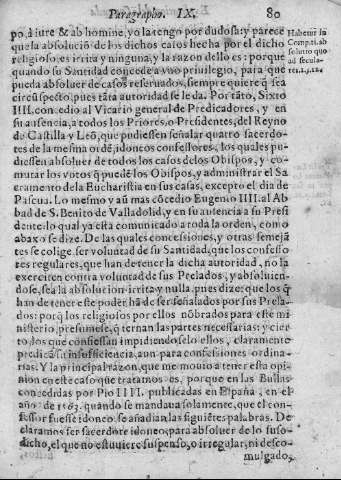 Paragrapho. IX. 80
po, à iure & ab homine, yo la tengo por dudosa: y parece
que la absoluciõ de los dichos casos hecha por el dicho
religioso es irrita y ninguna, y la razon dello es: porque
quando su Santidad concede a vno priuilegio, para que
pueda absoluer de casos reseruados, siempre quiere q̃ sea
circũspecto, pues tãta autoridad se le da. Por tãto, Sixto
IIII. concedio al Vicario general de Predicadores, y en
su ausencia, a todos los Priores, o Presidentes, del Reyno
de Castilla y Leõ, que pudiessen señalar quatro sacerdo-
tes de la mesma ordẽ, idoneos confessores, los quales pu-
diessen absoluer de todos los casos delos Obispos, y co-
mutar los votos q̃ puedẽ los Obispos, y administrar el Sa
cramento dela Eucharistia en sus casas, excepto el dia de
Pascua. Lo mesmo y aũ mas cõcedio Eugenio IIII. al Ab
bad de S. Benito de Valladolid, y en su autencia a su Presi
dente: lo qual ya esta comunicado a toda la orden, como
abaxo se dize. De las quales concessiones, y otras semejã
tes se colige, ser voluntad de su Santidad, que los confesso
res regulares, que han de tener la dicha autoridad, no la
exerciten contra voluntad de sus Prelados, y absoluien-
do se, sea la absolucion irrita y nulla. pues dize: que los q̃
han de tener este poder, hã de ser señalados por sus Prela-
dos: porq̃ los religiosos por ellos nõbrados para este mi
nisterio, presumese, q̃ ternan las partes necessarias: y cier
to, los que confiessan impidiendoselo ellos, claramente
predicã su insufficiencia, aun para confessiones ordina-
rias. Y la principal razon, que me mouio a tener esta opi
nion en este caso que tratamos es, porque en las Bullas
concedidas por Pio IIII. publicadas en España, en el
año de 1563. quando se mandaua solamente, que el con-
fessor fuesse idoneo se añadian las siguiẽtes palabras. De
claramos ser sacerdote idoneo, para absoluer de lo suso-
dicho, el que no estuuiere suspenso, o irregular, ni desco-
mulgado,
Habetur in
Comp. ti. ab
solutio quo
ad secula-
res.